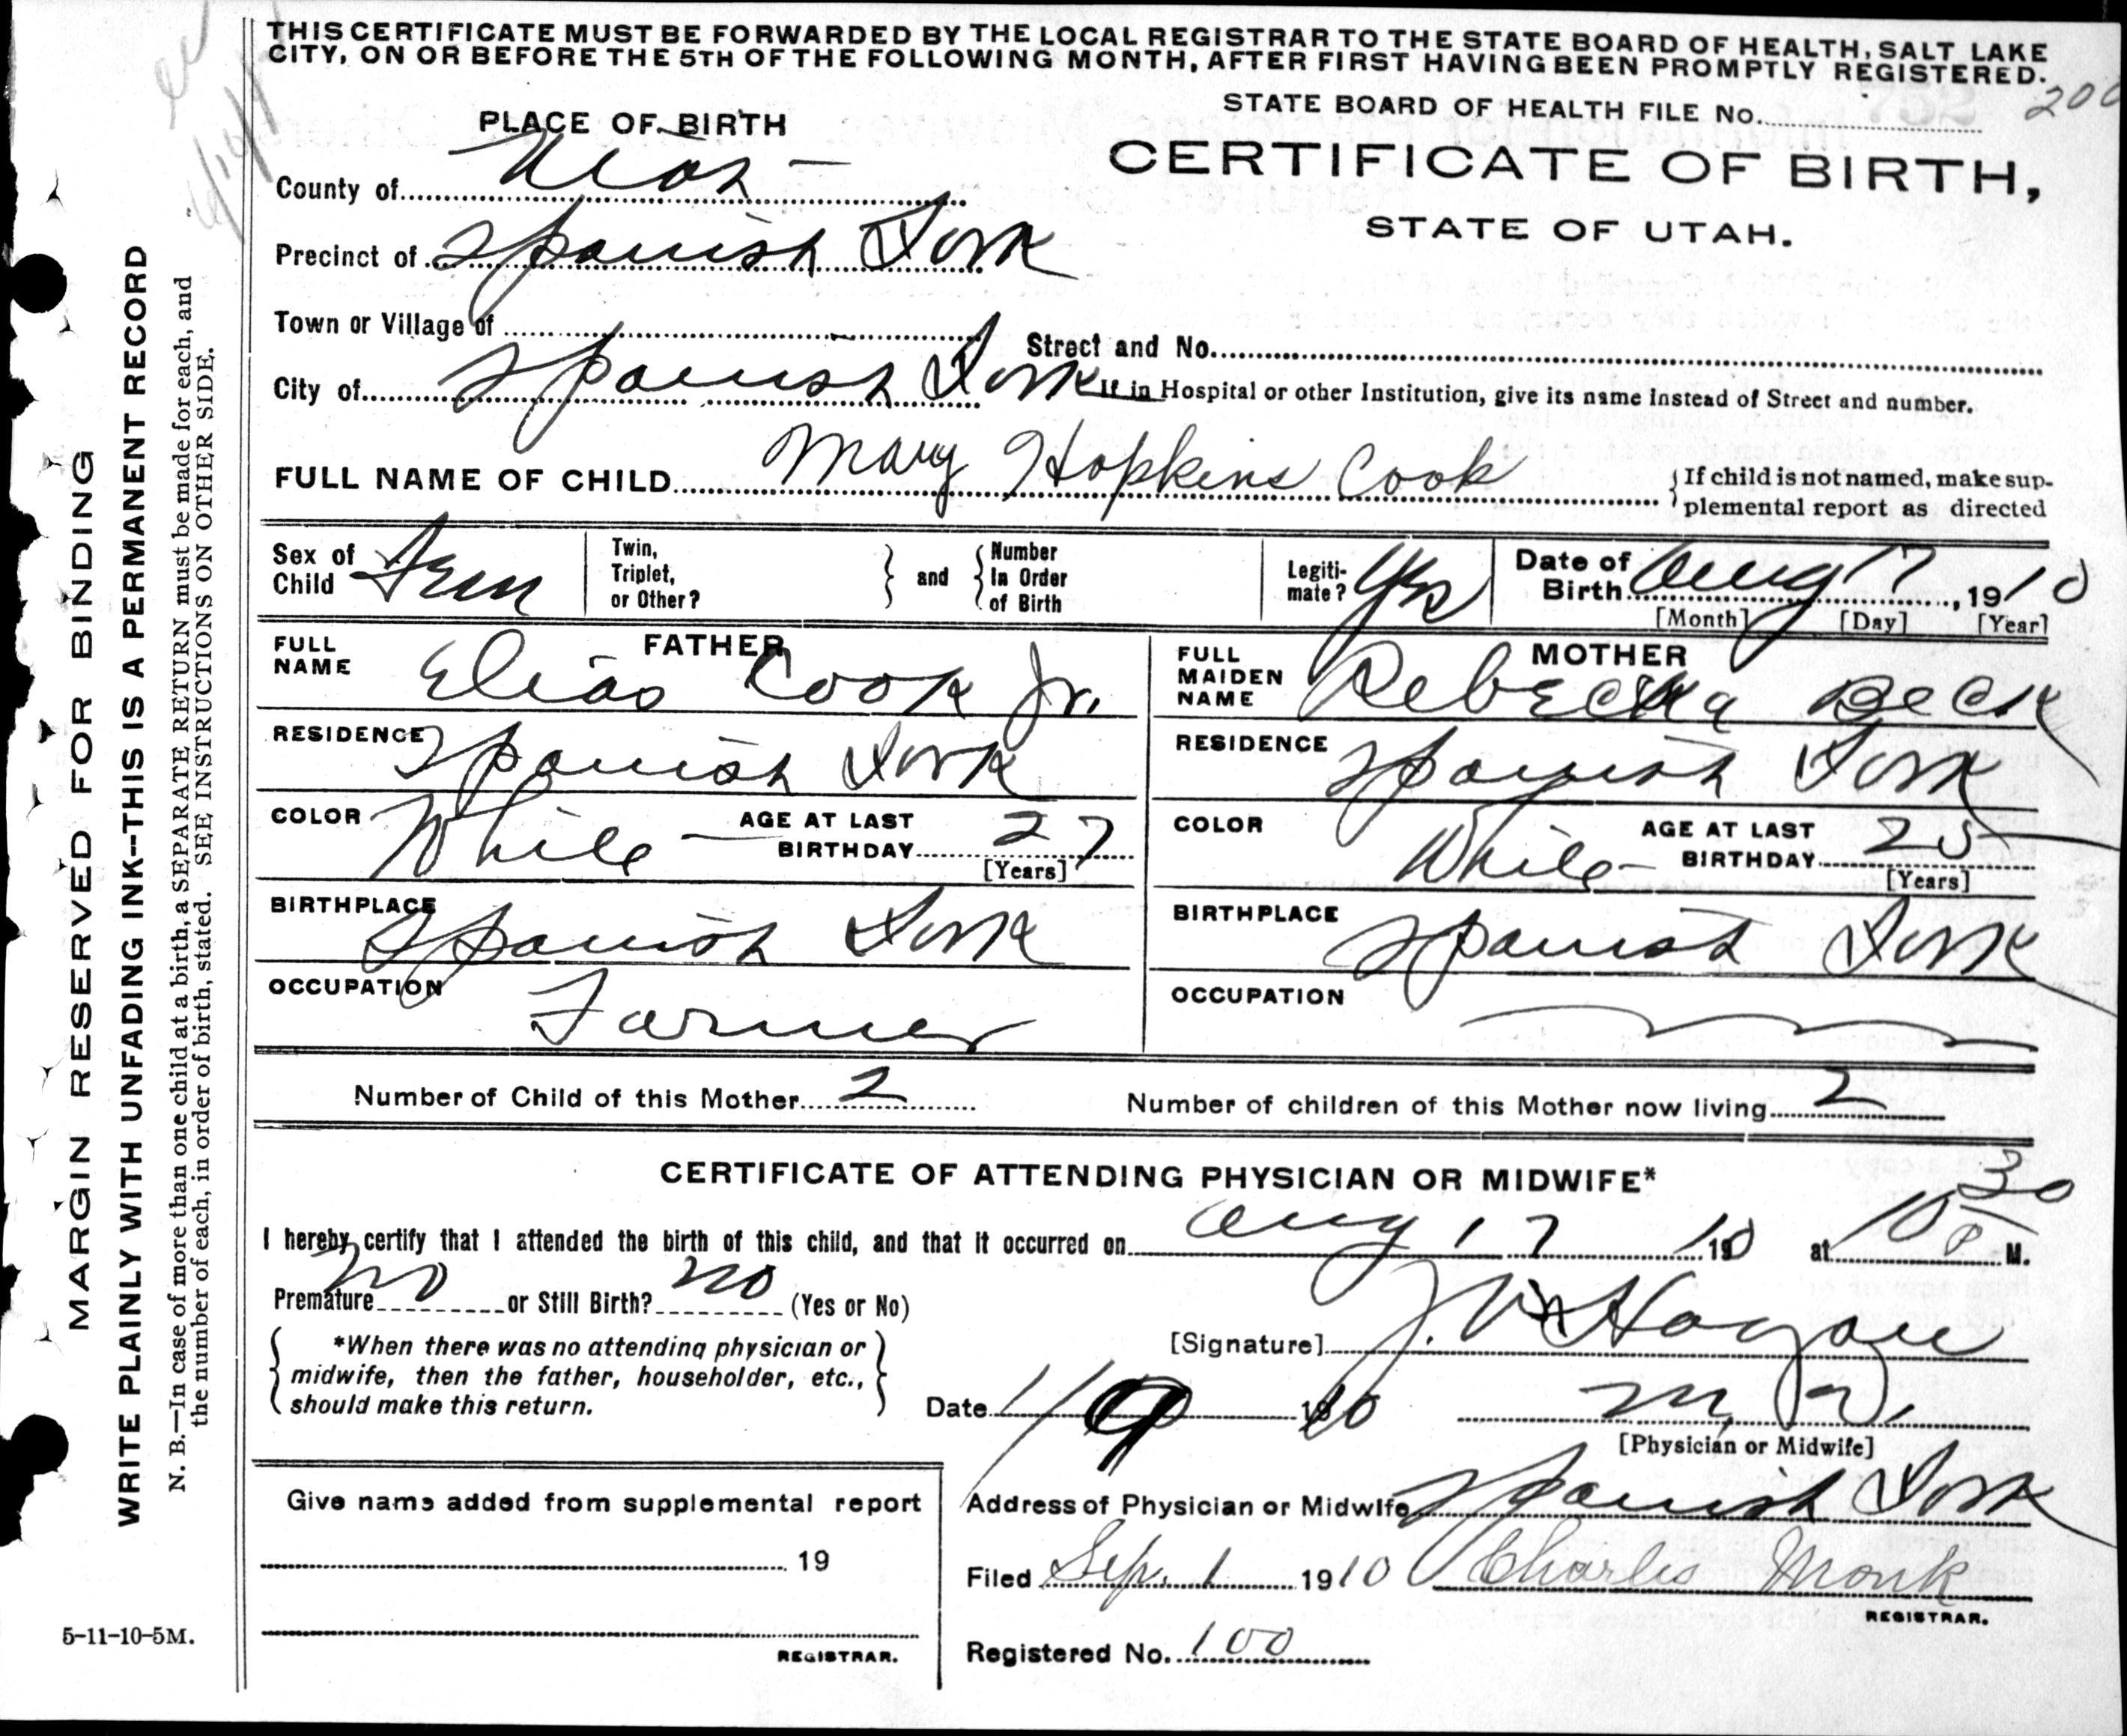 THIS CERTIFICATE MUST BE FORWARDED BY THE LOCAL REGISTRAR TO THE STATE BOARD OF HEALTH, SALT LAKE
CITY, ON OR BEFORE THE 5TH OF THE FOLLOWING MONTH, AFTER FIRST HAVING BEEN PROMPTLY REGISTERED.
STATE BOARD OF HEALTH FILE No. 200
PLACE OF BIRTH
CERTIFICATE OF BIRTH,
STATE OF UTAH.
County of Utah
Precinct of Spanish Fork
Town or Village of
Street and No.
City of Spanish Fork
If in Hospital or other Institution, give its name instead of Street and number.
FULL NAME OF CHILD Mary Hopkins Cook
If child is not named, make sup-
plemental report as directed
Sex of Child Fem
Twin, Triplet, or Other?
and
Number In Order of Birth
Legiti-mate? Yes
Date of Birth Aug 17, 1910
[Month] [Day] [Year]
FATHER
FULL NAME Elias Cook Jr.
RESIDENCE Spanish Fork
COLOR White AGE AT LAST BIRTHDAY 27
[Years]
BIRTHPLACE Spanish Fork
OCCUPATION Farmer
MOTHER
FULL MAIDEN NAME Rebecka Beck
RESIDENCE Spanish Fork
COLOR White AGE AT LAST BIRTHDAY 25
[Years]
BIRTHPLACE Spanish Fork
OCCUPATION
Number of Child of this Mother 2 Number of children of this Mother now living 2
CERTIFICATE OF ATTENDING PHYSICIAN OR MIDWIFE*
I hereby certify that I attended the birth of this child, and that it occurred on Aug 17 1910 at 10 30 P M.
Premature no or Still Birth? no (Yes or No)
*When there was no attending physician or
midwife, then the father, householder, etc.,
should make this return.
[Signature] J. W. Hagan
Date 1/9 1910 M.D.
[Physician or Midwife]
Address of Physician or Midwife Spanish Fork
Give name added from supplemental report
19
REGISTRAR.
Filed Sep. 1 1910 Charles Monk
REGISTRAR.
Registered No. 100
MARGIN RESERVED FOR BINDING
WRITE PLAINLY WITH UNFADING INK--THIS IS A PERMANENT RECORD
N. B.—In case of more than one child at a birth, a SEPARATE RETURN must be made for each, and
the number of each, in order of birth, stated. SEE INSTRUCTIONS ON OTHER SIDE.
5-11-10-5M.